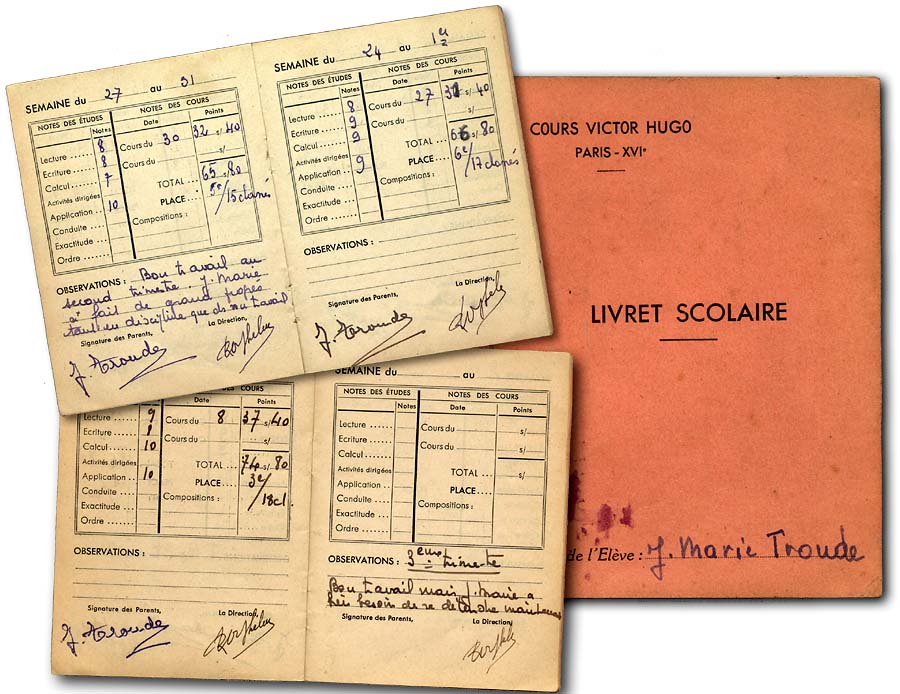 SEMAINE du 27 au 31
NOTES DES ÉTUDES
NOTES DES COURS
Notes
Date
Points
Lecture ...... 8
Cours du 30 32 s/ 40
Ecriture ...... 8
Cours du s/
Calcul ...... 7
TOTAL ... 65 s/ 80
Activités dirigées
PLACE ... 5e/15 classés
Application .. 10
Compositions :
Conduite ....
Exactitude ...
Ordre .......
OBSERVATIONS : Bon travail au
second trimestre. J. Marie
a fait de grand progrès
tant en discipline que ds son travail
Signature des Parents,
La Direction,
J. Troude
SEMAINE du 24 au 1er
NOTES DES ÉTUDES
NOTES DES COURS
Notes
Date
Points
Lecture ...... 8
Cours du 27 s/ 40
Ecriture ...... 9
Cours du s/
Calcul ...... 9
TOTAL ... 66 s/ 80
Activités dirigées
PLACE ... 6e/17 classés
Application .. 9
Compositions :
Conduite ....
Exactitude ...
Ordre .......
OBSERVATIONS :
Signature des Parents,
La Direction,
J. Troude
COURS VICTOR HUGO
PARIS - XVIe
LIVRET SCOLAIRE
de l'Elève : J. Marie Troude
DES COURS
Date
Points
Lecture ...... 9
Cours du 8 37 s/ 40
Ecriture ......
Cours du s/
Calcul ...... 10
Activités dirigées
TOTAL ... 74 s/ 80
Application .. 10
PLACE ... 3e/18 cl.
Conduite ....
Compositions :
Exactitude ...
Ordre .......
OBSERVATIONS :
Signature des Parents,
La Direction,
J. Troude
SEMAINE du au
NOTES DES ÉTUDES
NOTES DES COURS
Notes
Date
Points
Lecture ......
Cours du s/
Ecriture ......
Cours du s/
Calcul ......
Activités dirigées
TOTAL .... s/
Application ..
PLACE ....
Conduite ....
Compositions :
Exactitude ...
Ordre .......
OBSERVATIONS : 3eme trimestre
Bon travail mais J. Marie a
bien besoin de se détendre maintenant
Signature des Parents,
La Direction,